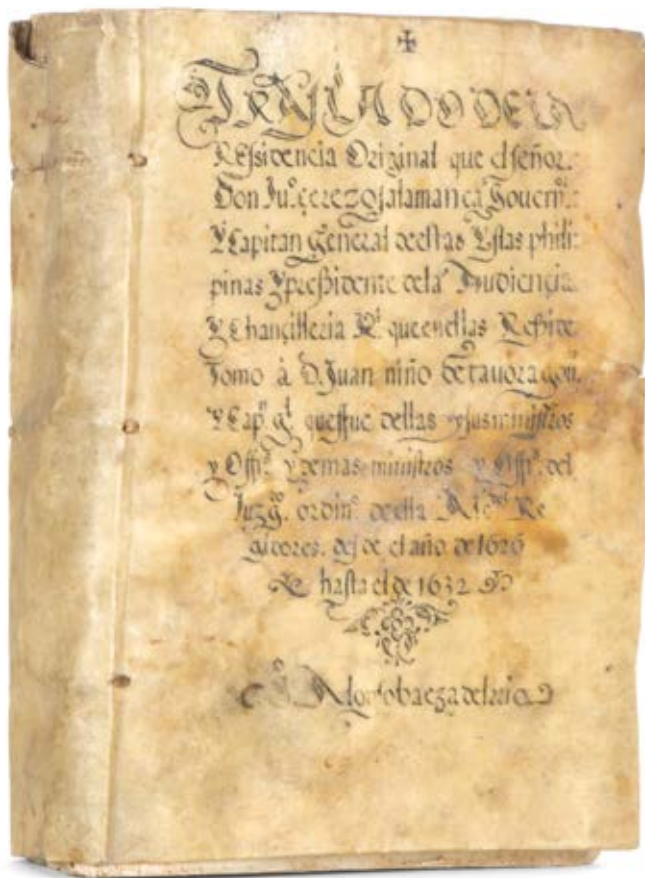 TRASLADO DE LA
REsidencia Original que el señor.
Don Juº. çerezo salamanca Gouernºr.
Y Capitan General de estas Yslas phili-
pinas Y pressidente de la Audiençia
Y Chançilleria Rl que en ellas Reside
Tomo à D. Juan niño de tauora gou.
Y Capn. gl. que ffue dellas y sus ministros
y Offis. y demas ministros y Offis. del
Juzgº. ordinº. de ella Re
gidores. desde el año de 1626
hasta el de 1632
Alonso baeza del rio